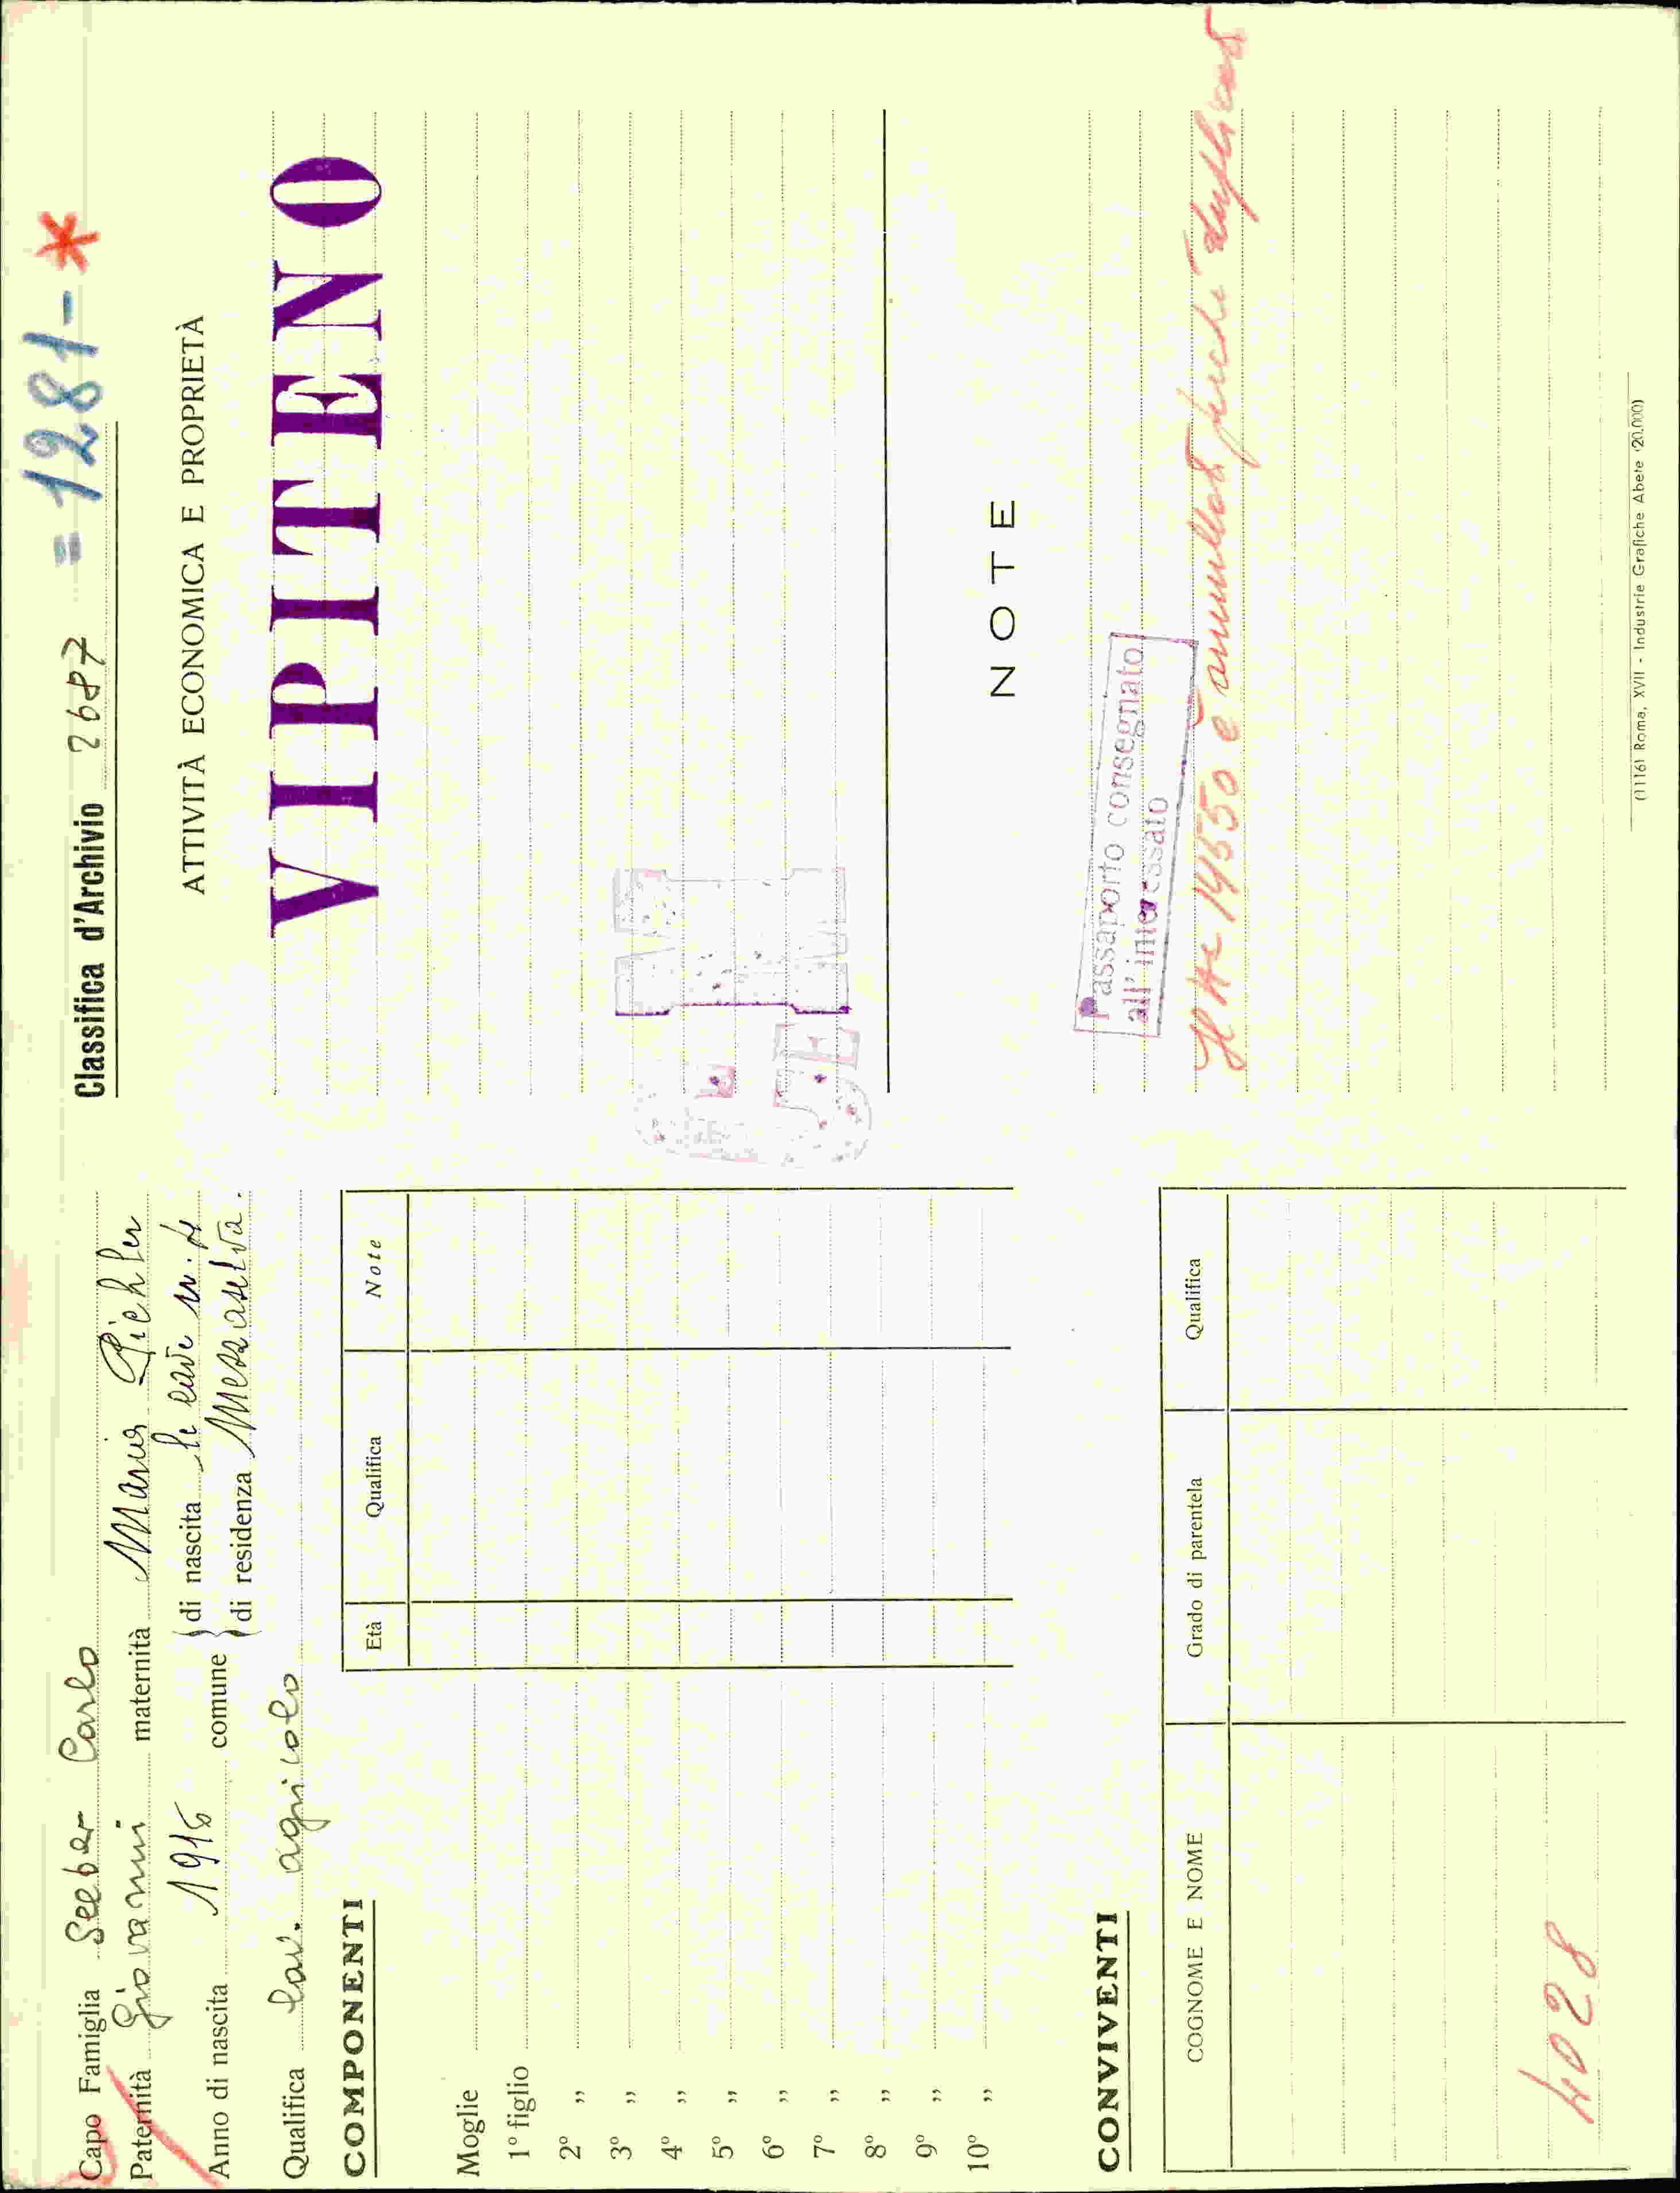 Capo Famiglia Seeber Carlo
Paternità Giovanni maternità Maria Pichler
Anno di nascita 1915 comune
di nascita
di residenza Mezzaselva.
Qualifica lav. agricolo
COMPONENTI
Età Qualifica Note
Moglie
1° figlio
2° ”
3° ”
4° ”
5° ”
6° ”
7° ”
8° ”
9° ”
10° ”
CONVIVENTI
COGNOME E NOME Grado di parentela Qualifica
4028
Classifica d'Archivio 2687 = 1281-*
ATTIVITÀ ECONOMICA E PROPRIETÀ
VIPITENO
NOTE
Passaporto consegnato
all' interessato
14550 è annullato perché duplicato
(11116) Roma, XVII - Industrie Grafiche Abete (20.000)